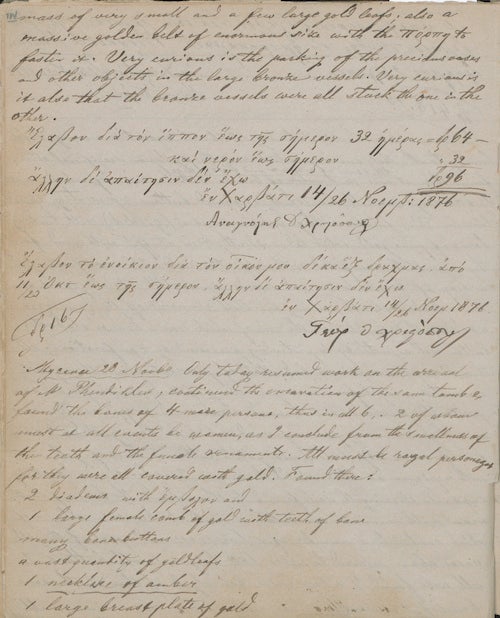 mass of very small and a few large gold leafs; also a
massive golden belt of enormous size with the πόρπη to
fasten it. Very curious is the packing of the precious vases
and other objects in the large bronze vessels. Very curious is
it also that the bronze vessels were all stuck the one in the
other.
Ἔλαβον διὰ τὸν ἵππον ἕως τῆς σήμερον 32 ἡμέρας δρ 64 –
καὶ νερὸν ἕως σήμερον " 32
ἄλλην δὲ ἀπαίτησιν δὲν ἔχω δρ 96
ἐν Χαρβάτι 14/26 Νοεμβ: 1876
Ἔλαβον τὸ ἐνοίκιον διὰ τὸν οἶκόν μου δέκα ἓξ δραχμάς, ἀπὸ
11/23 Οκτ ἕως τῆς σήμερον, ἄλλην δὲ ἀπαίτησιν δὲν ἔχω
ἐν Χαρβάτι 14/26 Νοεμ 1876
δρ 16
Mycenae 29 Novb. Only today resumed work on the arrival
of M. Phendikles; continued the excavation of the same tomb &
found the bones of 4 more persons, thus in all 6, 2 of whom
must at all events be women, as I conclude from the smallness of
the teeth and the female ornaments. All must be royal personages
for they were all covered with gold. Found there:
2 diadems with ἔμβολον and
1 large female comb of gold with teeth of bone
many bone buttons
a vast quantity of goldleafs
1 necklace of amber
1 large breast plate of gold